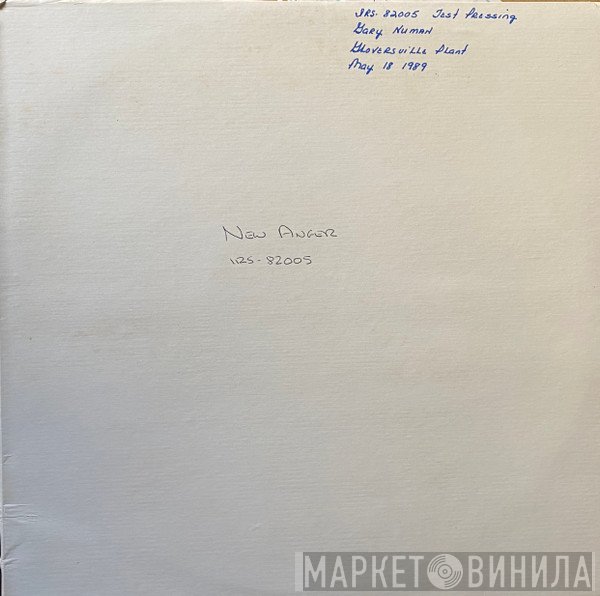 IRS. 82005 Test Pressing
Gary Numan
Gloversville Plant
May 18 1989
NEW ANGER
IRS-82005
МАРКЕТ ВИНИЛА